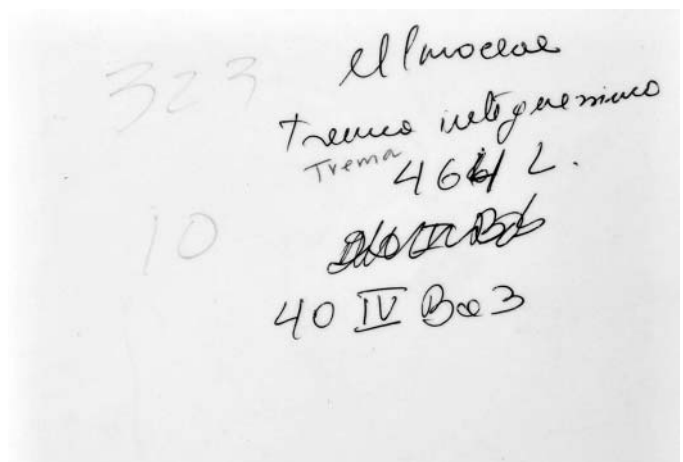 323
Ulmaceae
Trema integerrima
Trema
464 L.
10
40 IV Ba 3